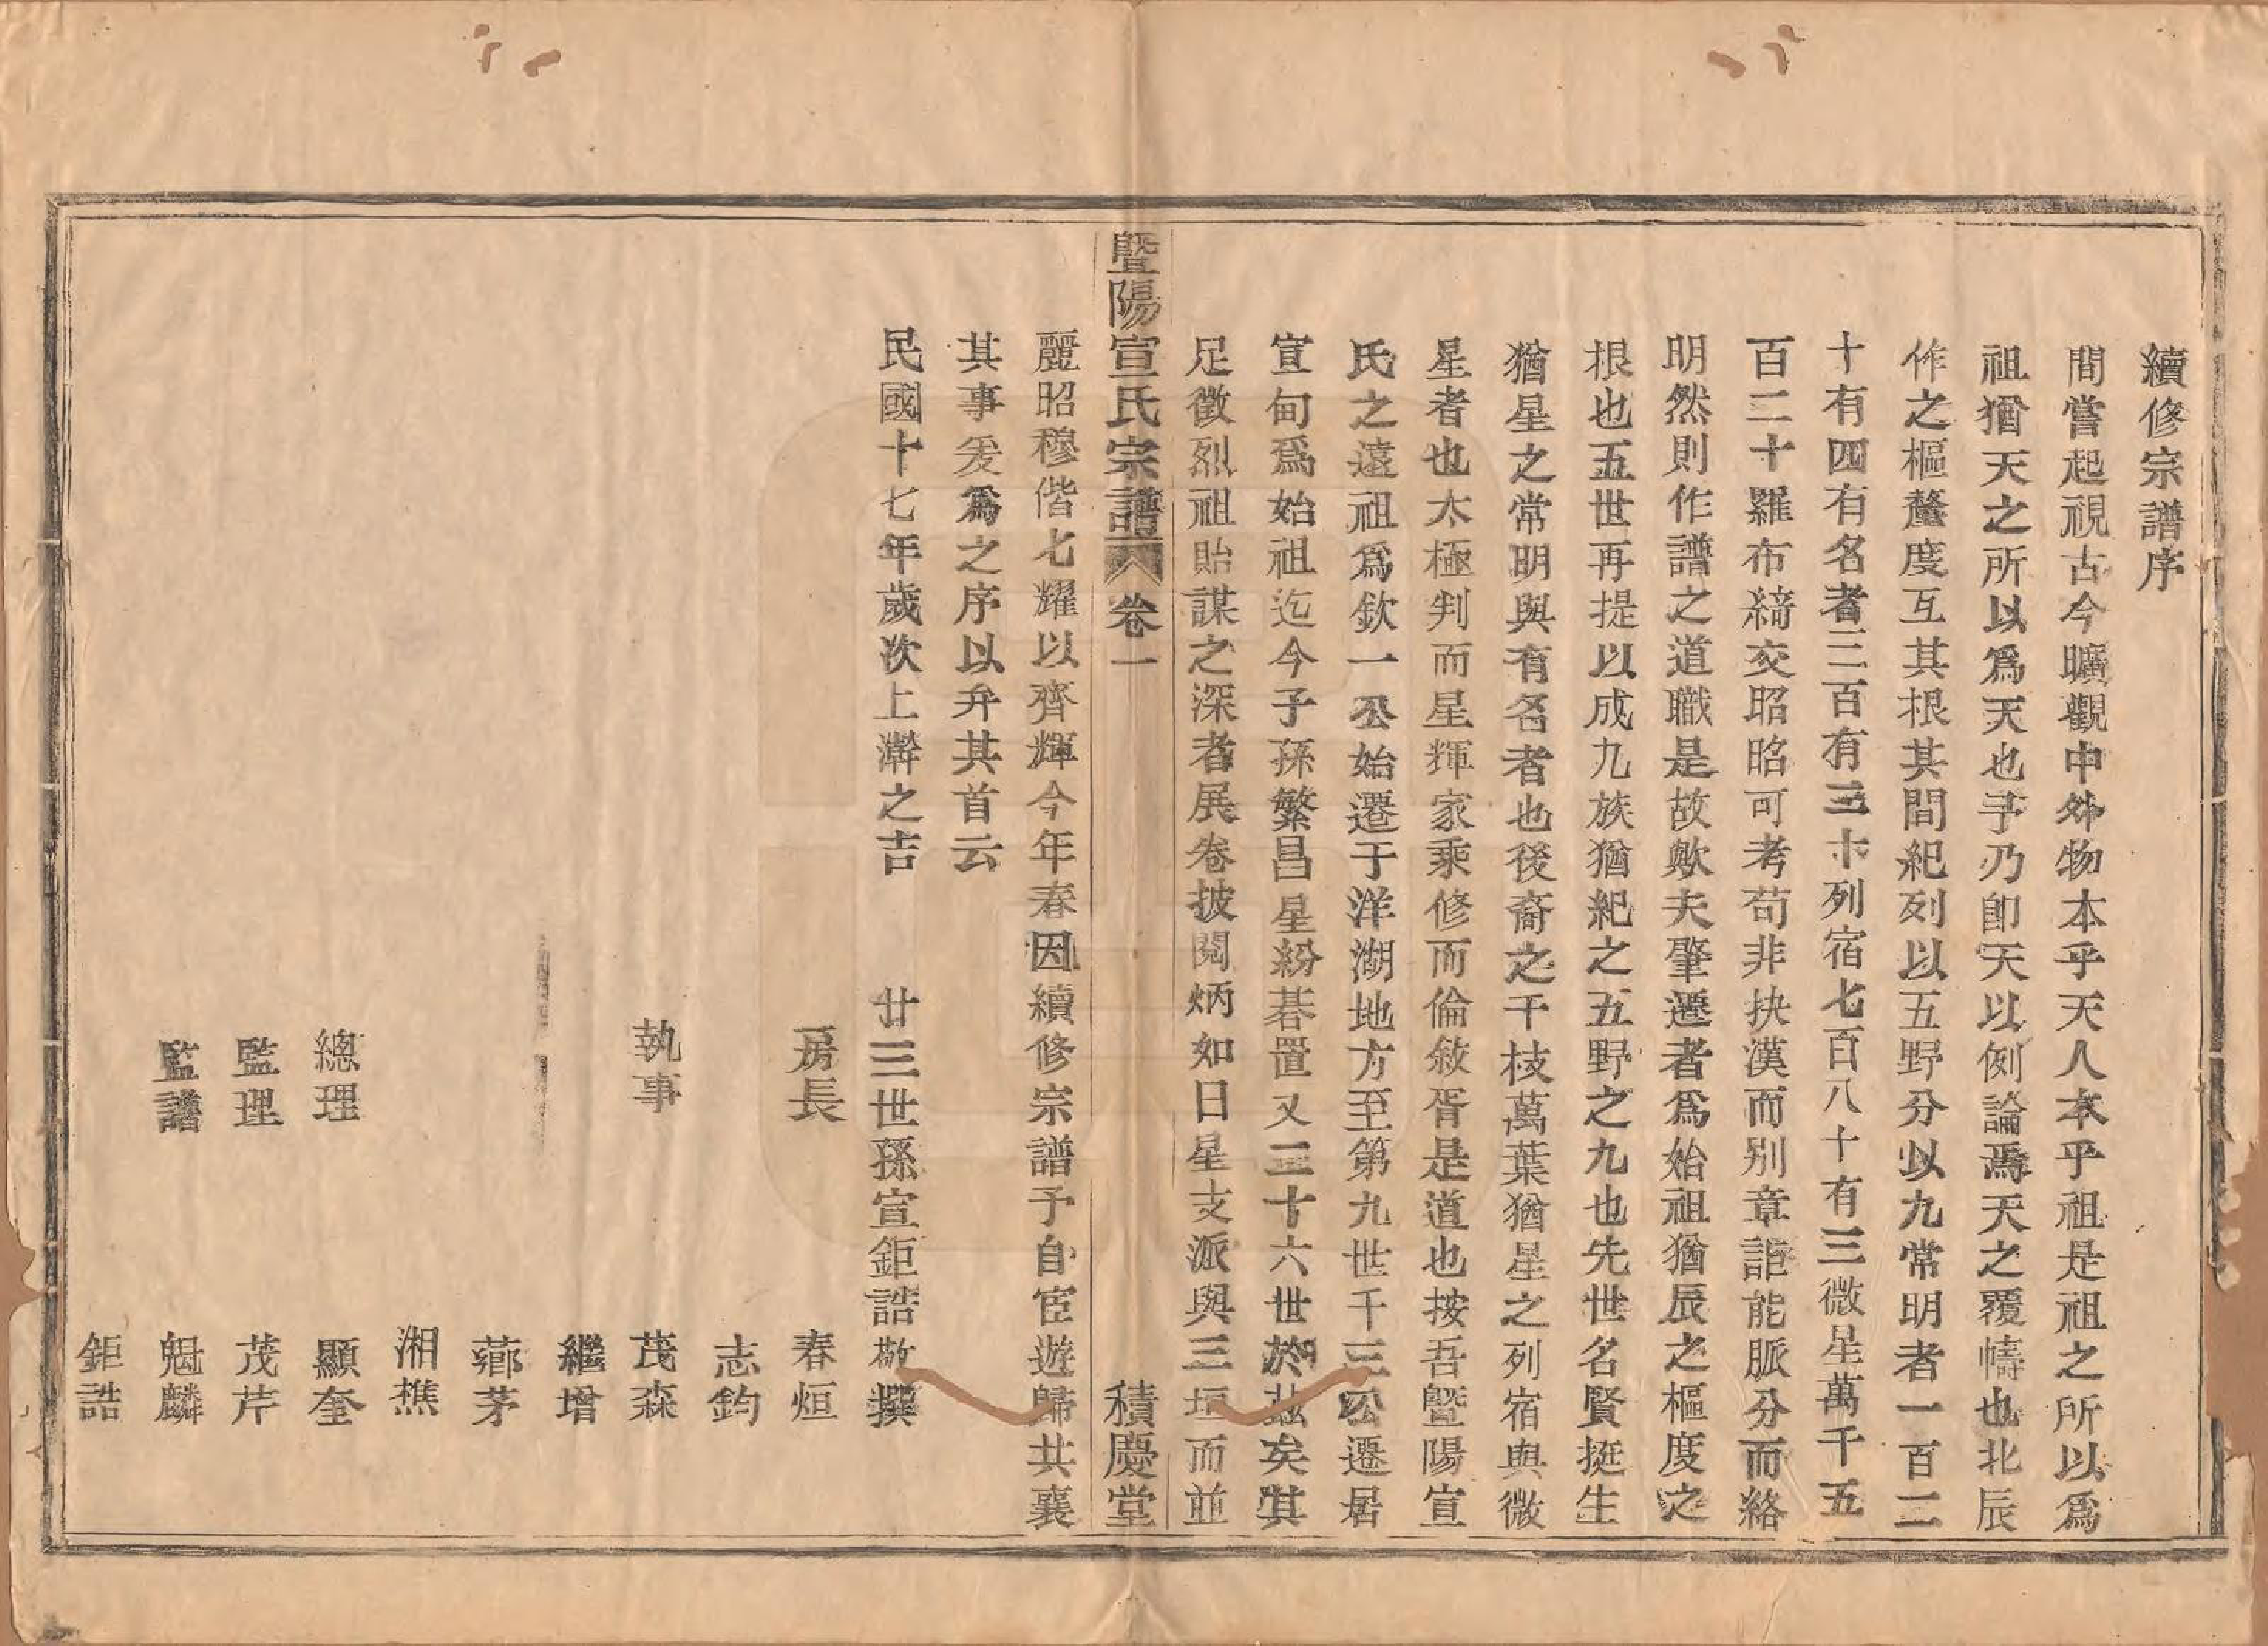 續修宗譜序
間嘗起視古今曠觀中外物本乎天人本乎祖是祖之所以爲
祖猶天之所以爲天也予乃卽天以例論焉天之覆幬也北辰
作之樞釐度互其根其間紀列以五野分以九常明者一百二
十有四有名者三百有三十列宿七百八十有三微星萬千五
百二十羅布綺交昭昭可考苟非抉漢而别章詎能脈分而絡
明然則作譜之道職是故歟夫肇遷者爲始祖猶辰之樞度之
根也五世再提以成九族猶紀之五野之九也先世名賢挺生
猶星之常明與有名者也後裔之千枝萬葉猶星之列宿與微
星者也太極判而星輝家乘修而倫敘胥是道也按吾暨陽宣
氏之遠祖爲欽一公始遷于洋湖地方至第九世千三公遷居
宣甸爲始祖迄今子孫繁昌星紛碁置又二十六世於茲矣其
足徵烈祖貽謀之深者展卷披閱炳如日星支派與三垣而並
暨陽宣氏宗譜 卷一 積慶堂
麗昭穆偕七耀以齊輝今年春因續修宗譜予自宦遊歸共襄
其事爰爲之序以弁其首云
民國十七年歲次上澣之吉 廿三世孫宣鉅誥敬撰
房長 春烜
志鈞
執事 茂森
繼增
薌茅
湘樵
總理 顯奎
監理 茂芹
監譜 魁麟
鉅誥